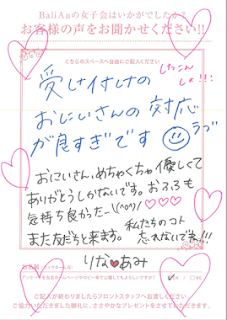 BaliAnの女子会はいかがでしたか？
お客様の声をお聞かせください!!
こちらのスペースへご自由にご記入ください
受け付けの
おにいさんの対応
が良すぎです
ラブ
おにいさん、めちゃくちゃ優しくて
ありがとうしかないです。おふろも
気持ち良かったー \(^o^)/ ♡♡♡
また友だちと来ます。
私たちのコト
忘れないで!!!
りな♥あみ
ご記入が終わりましたらフロントスタッフへお渡しください
ご協力いただきました御礼に、ささやかなプレゼントをさせていただきます。